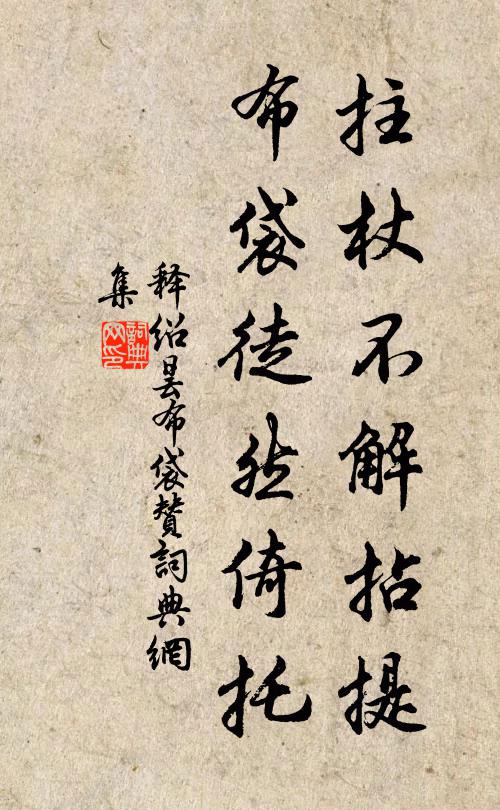 拄杖不解拈提
布袋徒然倚托
释绍昙布袋赞詞典網
集
詞典网印